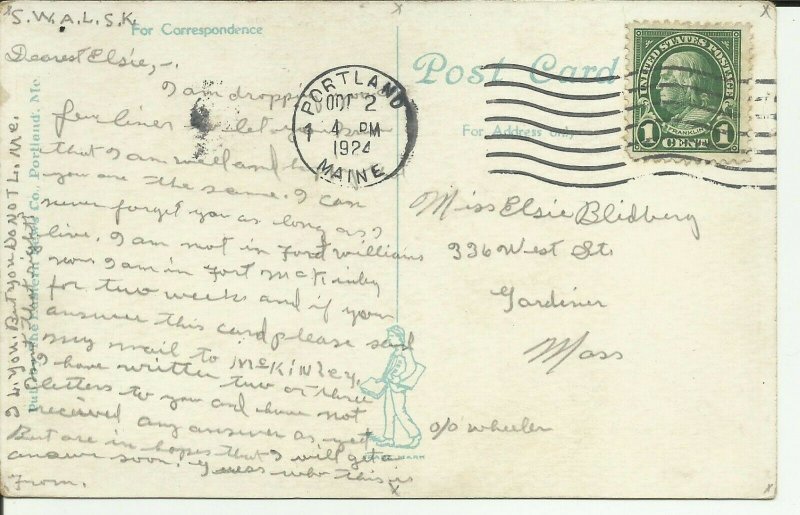 S.W.A.L.S.K.
For Correspondence
Dearest Elsie, -.
I am dropping you a
few lines to let you know
that I am well and hope
you are the same. I can
never forget you as long as I
live. I am not in Fort Williams
now I am in Fort McKinley
for two weeks and if you
answer this card please send
my mail to McKinley.
I have written two or three
letters to you and have not
received any answer as yet
But are in hopes that I will get a
answer soon. Guess who this is
From.
I L. you. But you Do NOT L. me.
Isn't that right
Pub. by The Eastern News Co., Portland, Me.
Post Card
For Address only
PORTLAND
OCT 2
4 PM
1924
MAINE
1
UNITED STATES POSTAGE
FRANKLIN
1 CENT 1
Miss Elsie Blidberg
336 West St.
Gardiner
Mass
c/o Wheeler
TRADE MARK